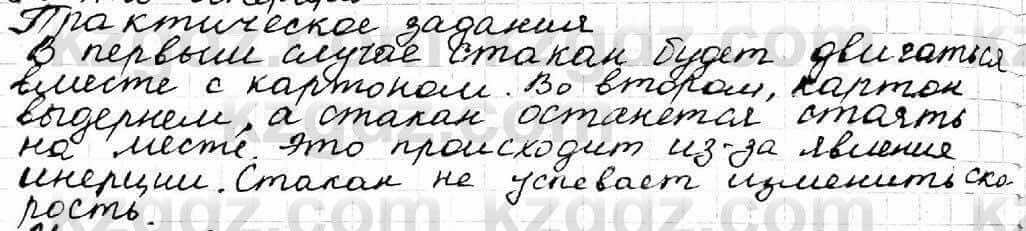 Практическое задания
В первый случае стакан будет двигаться
вместе с картоном. Во втором, картон
выдернем, а стакан останется стоять
на месте. Это происходит из-за явления
инерции. Стакан не успевает изменить ско
рость.
kzgdz.com